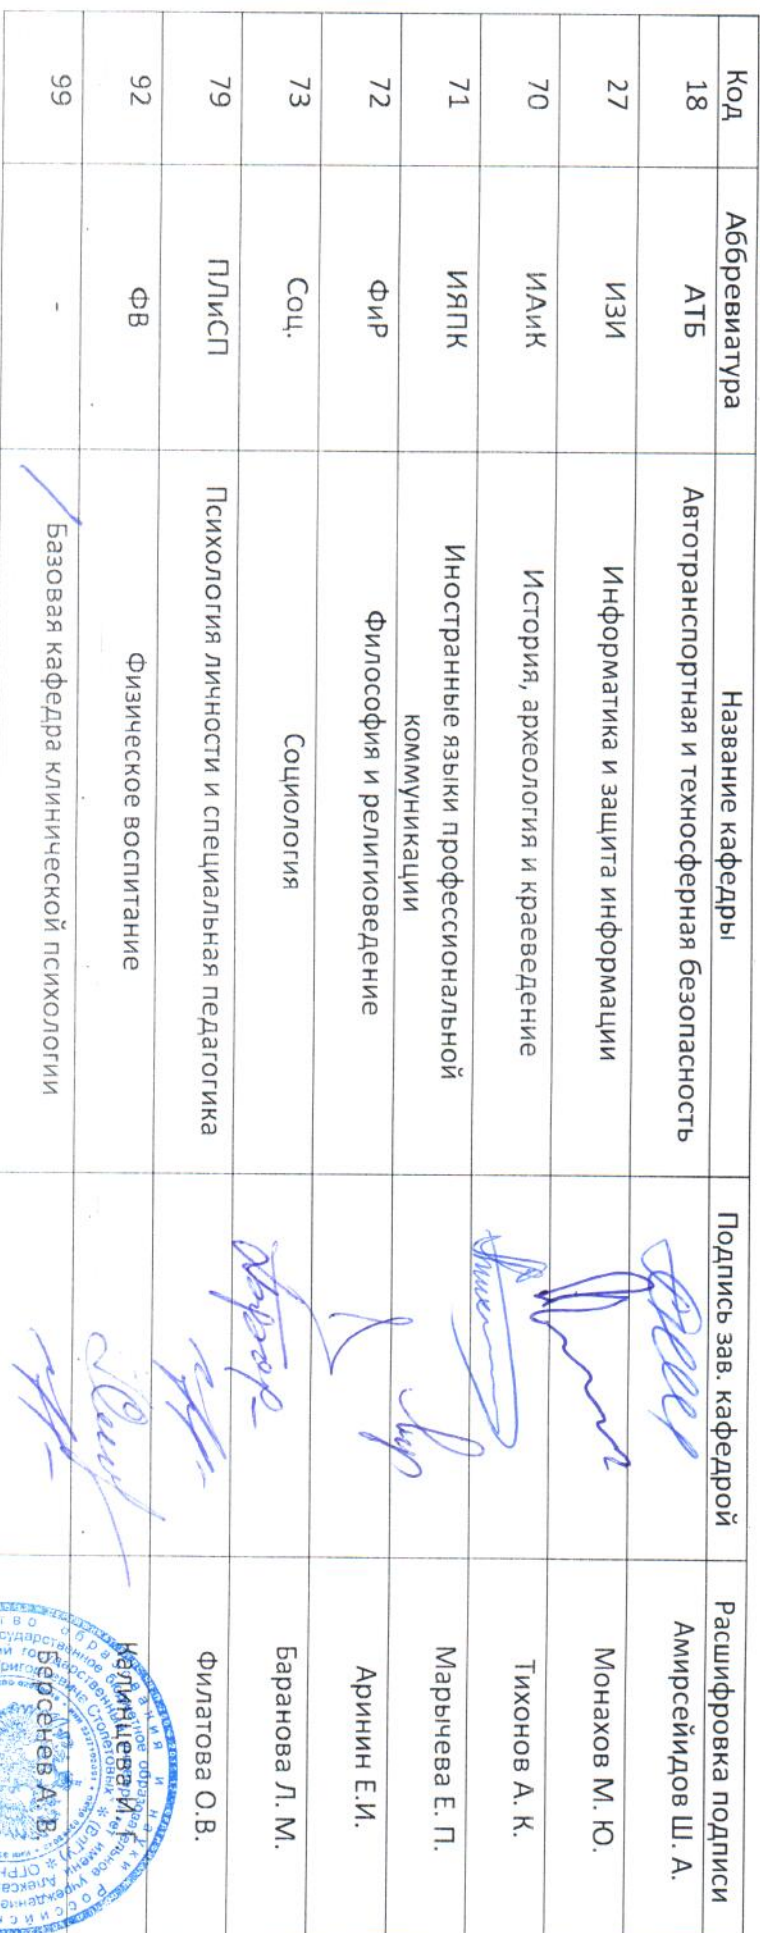 Код Аббревиатура Название кафедры Подпись зав. кафедрой Расшифровка подписи
18 АТБ Автотранспортная и техносферная безопасность Амирсейидов Ш. А.
27 ИЗИ Информатика и защита информации Монахов М. Ю.
70 ИАиК История, археология и краеведение Тихонов А. К.
71 ИЯПК Иностранные языки профессиональной
коммуникации Марычева Е. П.
72 ФиР Философия и религиоведение Аринин Е.И.
73 Соц. Социология Баранова Л. М.
79 ПЛиСП Психология личности и специальная педагогика Филатова О.В.
92 ФВ Физическое воспитание Калинцева И. Г.
99 - Базовая кафедра клинической психологии Берсенев А. В.